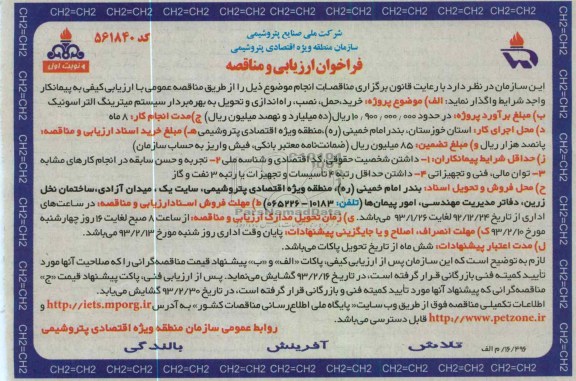 CH2=CH2 CH2=CH2 CH2=CH2 CH2=CH2 CH2=CH2 CH2=CH2 CH2=CH2
شرکت ملی صنایع پتروشیمی
سازمان منطقه ویژه اقتصادی پتروشیمی
کد ۵۶۱۸۴۰
نوبت اول
فراخوان ارزیابی و مناقصه
این سازمان در نظر دارد با رعایت قانون برگزاری مناقصات انجام موضوع ذیل را از طریق مناقصه عمومی با ارزیابی کیفی به پیمانکار
واجد شرایط واگذار نماید: الف) موضوع پروژه: خرید، حمل، نصب، راه‌اندازی و تحویل به بهره‌بردار سیستم میترینگ التراسونیک
ب) مبلغ برآورد پروژه: در حدود ۱۰,۹۰۰,۰۰۰,۰۰۰ ریال (ده میلیارد و نهصد میلیون ریال) ج) مدت انجام کار: ۸ ماه
د) محل اجرای کار: استان خوزستان، بندر امام خمینی (ره)، منطقه ویژه اقتصادی پتروشیمی هـ) مبلغ خرید اسناد ارزیابی و مناقصه:
پانصد هزار ریال و) مبلغ تضمین: ۸۵ میلیون ریال (ضمانت‌نامه معتبر بانکی، فیش واریز به حساب سازمان)
ز) حداقل شرایط پیمانکاران: ۱- داشتن شخصیت حقوقی، کد اقتصادی و شناسه ملی ۲- تجربه و حسن سابقه در انجام کارهای مشابه
۳- توان مالی، فنی و تجهیزاتی ۴- داشتن حداقل رتبه ۴ تأسیسات و تجهیزات یا رتبه ۳ نفت و گاز
ح) محل فروش و تحویل اسناد: بندر امام خمینی (ره)، منطقه ویژه اقتصادی پتروشیمی، سایت یک، میدان آزادی، ساختمان نخل
زرین، دفاتر مدیریت مهندسی، امور پیمان‌ها (تلفن: ۱۰۱۸۳-۰۶۵۲۲۶) ط) مهلت فروش اسناد ارزیابی و مناقصه: در ساعت‌های
اداری از تاریخ ۹۲/۱۲/۲۴ الی ۹۳/۱/۲۶ می‌باشد. ی) زمان تحویل مدارک ارزیابی و مناقصه: از ساعت ۸ صبح لغایت ۱۶ روز چهارشنبه
مورخ ۹۳/۲/۱۰ ک) مهلت انصراف، اصلاح و یا جایگزینی پیشنهادات: پایان وقت اداری روز شنبه مورخ ۹۳/۲/۱۳ می‌باشد.
ل) مدت اعتبار پیشنهادات: شش ماه از تاریخ تحویل پاکات می‌باشد.
لازم به توضیح است که این سازمان پس از ارزیابی کیفی، پاکات «الف» و «ب» پیشنهاد قیمت مناقصه‌گرانی را که صلاحیت آنها مورد
تأیید کمیته فنی بازرگانی قرار گرفته است، در تاریخ ۹۳/۲/۱۶ گشایش می‌نماید. پس از ارزیابی فنی، پاکت پیشنهاد قیمت «ج»
مناقصه‌گرانی که پیشنهاد آنها مورد تأیید کمیته فنی و بازرگانی قرار گرفته است، در تاریخ ۹۳/۲/۳۰ گشایش یابد.
اطلاعات تکمیلی مناقصه فوق از طریق وب سایت «پایگاه ملی اطلاع‌رسانی مناقصات کشور» به آدرس http://iets.mporg.ir و
http://www.petzone.ir قابل دسترسی می‌باشد.
روابط عمومی سازمان منطقه ویژه اقتصادی پتروشیمی
۱۶/۴۹۶/م الف
تلاش آفرینش بالندگی
CH2=CH2 CH2=CH2 CH2=CH2 CH2=CH2 CH2=CH2 CH2=CH2 CH2=CH2